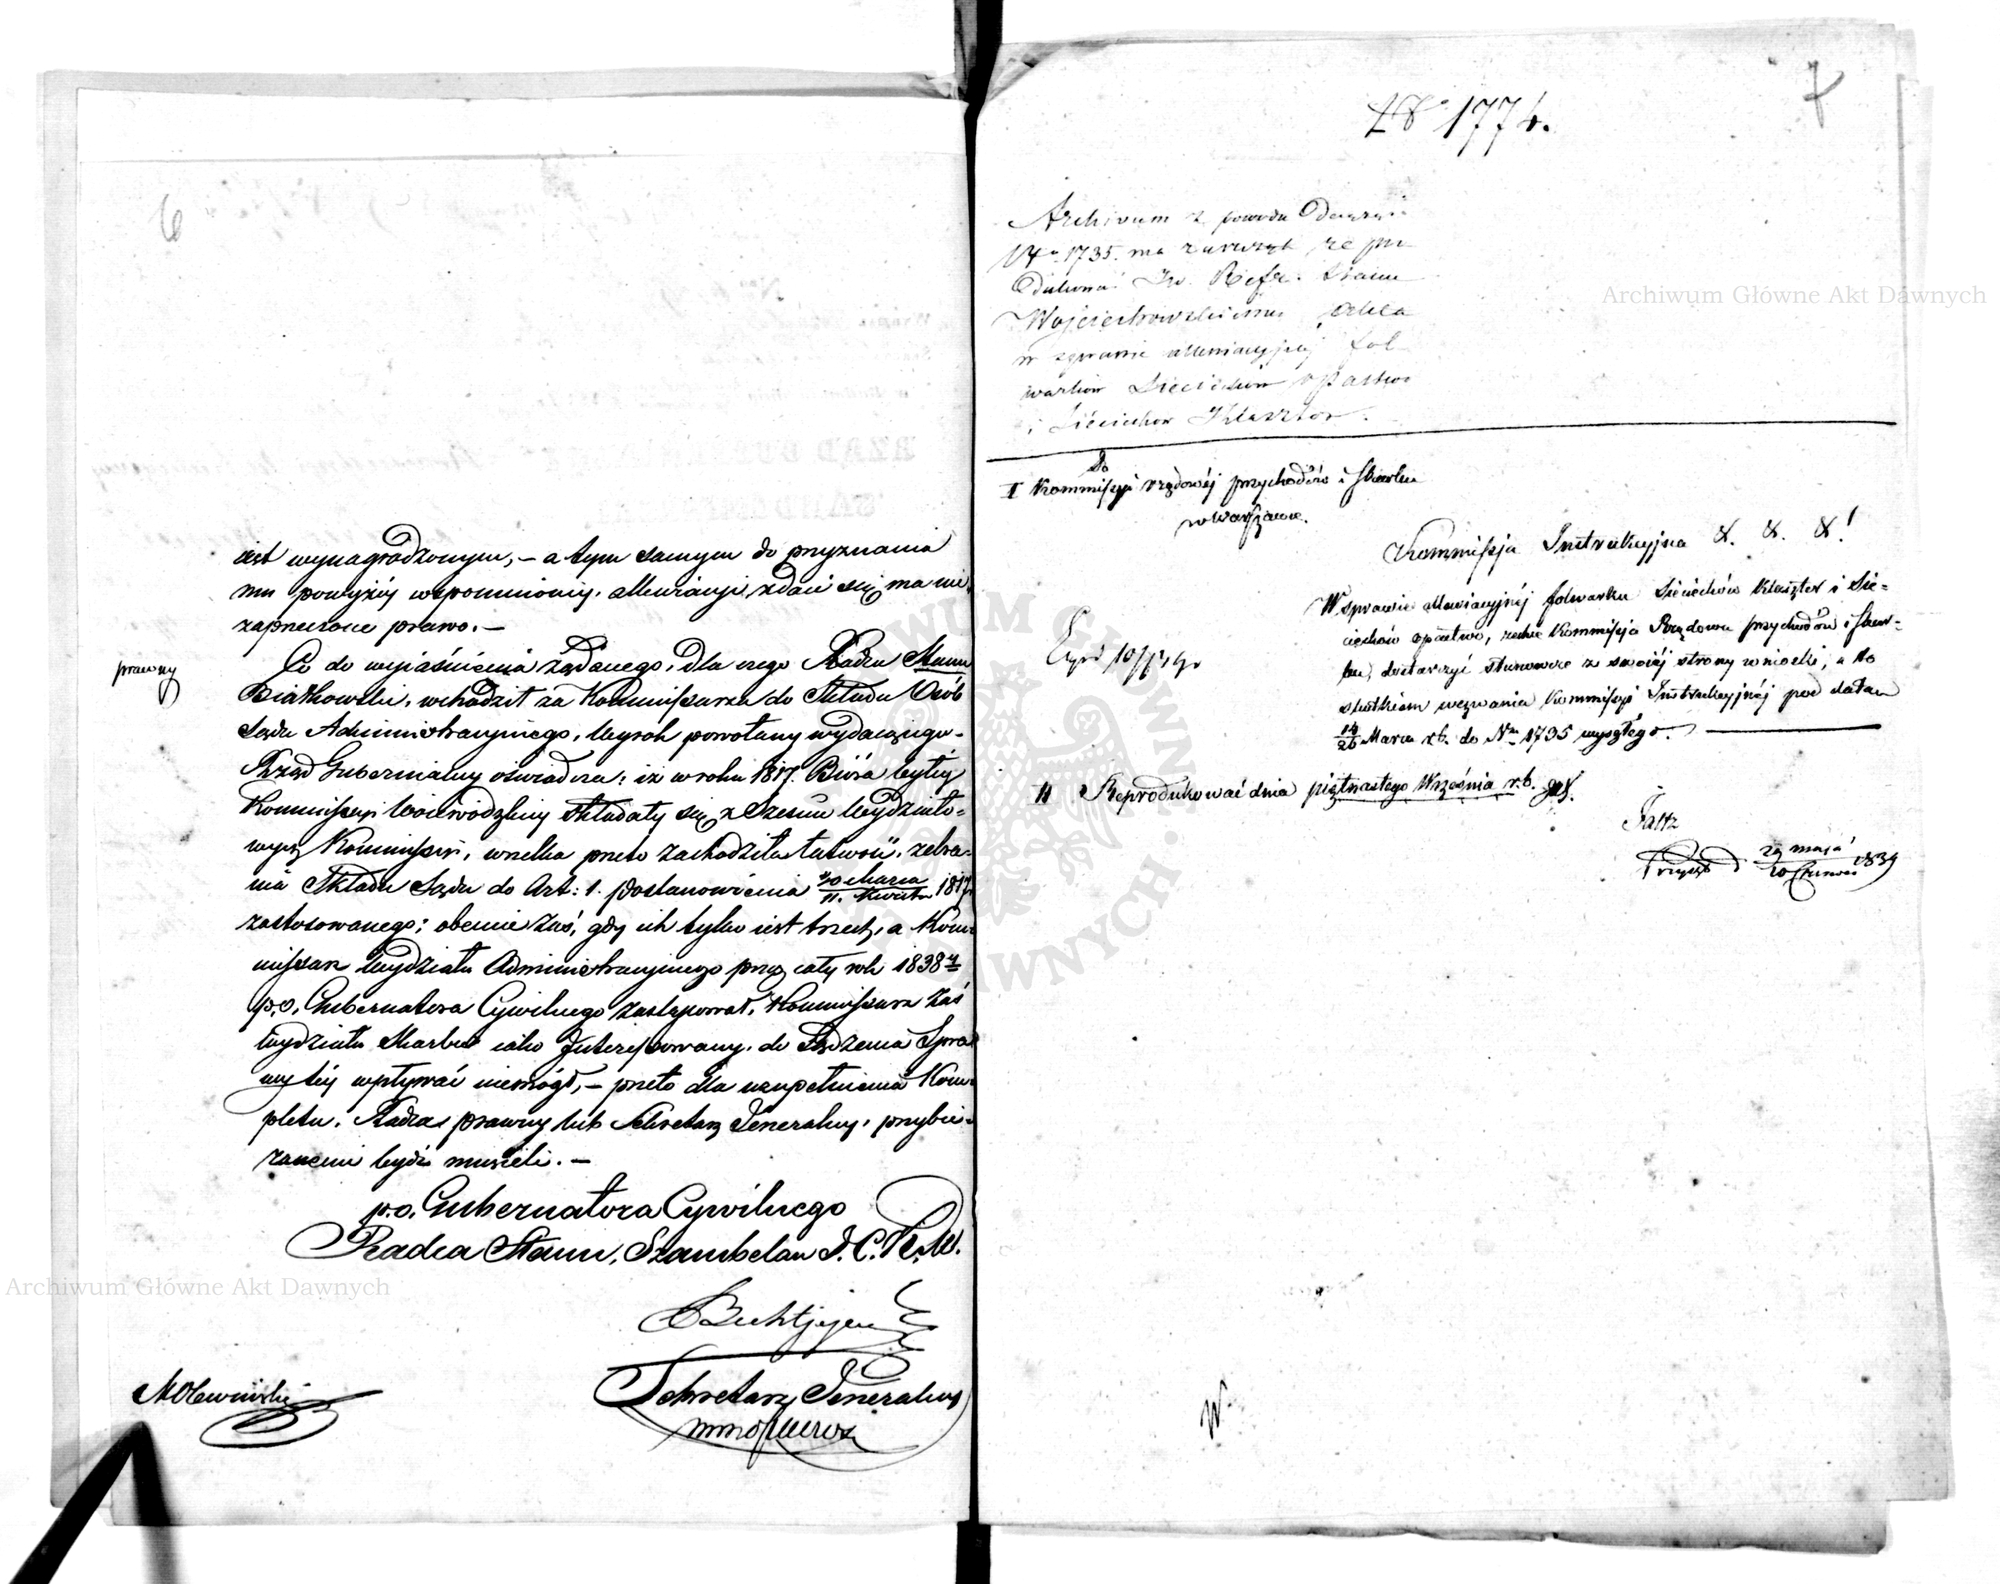 6
iest wynagrodzonym, – a tym samym do przyznania
mu powyżéj wspomnionéj, allewiacyi, zdaie się ma nie
zaprzeczone prawo. –
Co do wyiaśnienia żądanego, dla czego Radca Stanu
prawny
Białkowski, wchodził za Kommissarza do Składu Osób
Sądu Administracyinego, Wyrok powołany wydaiącego –
Rząd Gubernialny oświadcza: iż w roku 1817. Biura byłéj
Kommissyi Woiewódzkiéj składały się z Sześciu Wydziało-
wych Kommissarzy, wielka przeto zachodziła łatwość, zebra-
nia Składu Sądu do Art: 1. Postanowienia 30 Marca / 11. Kwietnia 1817
zastosowanego; obecnie zaś, gdy ich tylko iest trzech, a Kom-
missarz Wydziału Administracyinego przez cały rok 1838
p.o. Gubernatora Cywilnego zastępował, Kommissarz zaś
Wydziału Skarbu iako Interessowany, do Sądzenia Spra-
wy téj wpływać niemógł, – przeto dla uzupełnienia Kom-
pletu, Radca prawny lub Sekretarz Jeneralny, przybie-
ranemi bydź musieli. –
p.o. Gubernatora Cywilnego
Radca Stanu, Szambelan J. C. K. M.
Sekretarz Jeneralny
7
No 1774.
Archivum z powodu Odezwy
No 1735. ma zaszczyt, re pro
Dukować Jw. Refr. Stanu
Wojciechowskiemu akta
w sprawie allewiacyjnéj fol
warków Sieciechów Opactwo
i Sieciechów Klasztor.
Do
I Kommissyi rządowéj przychodów i Skarbu
w Warszawie.
Kommissja Instrukcyjna &. &. &!
W sprawie allewiacyjnéj folwarku Sieciechów Klasztor i Sie-
ciechów opactwo, zechce Kommissja Rządowa przychodów i Skar-
bu, dostarczyć stanowcze z swojéj strony wnioski, a to
skutkiem wezwania Kommissyi Instrukcyjnéj pod datą
14/26 Marca r.b. do Nru 1735 wyszłego. –
II Reprodukować dnia piętnastego Września r.b.
29 maja / 10 Czerwca 1839
Archiwum Główne Akt Dawnych
Archiwum Główne Akt Dawnych